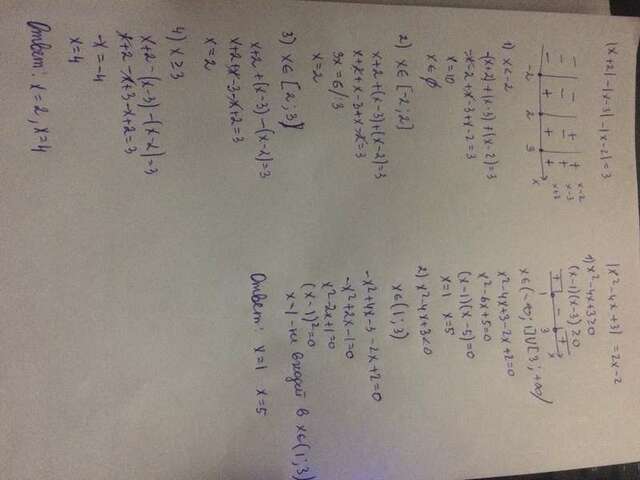 |x+2| -|x-3| -|x-2|=3
- - + + x-2
- - - + x-3
- + + + x+2
-2 2 3 x
1) x<-2
-(x+2)+(x-3)+(x-2)=3
-x-2+x-3+x-2=3
x=10
x∈∅
2) x∈[-2;2]
x+2+(x-3)+(x-2)=3
x+2+x-3+x-2=3
3x=6/:3
x=2
3) x∈[2;3]
x+2+(x-3)-(x-2)=3
x+2+x-3-x+2=3
x=2
4) x≥3
x+2-(x-3)-(x-2)=3
x+2-x+3-x+2=3
-x=-4
x=4
Ответ: x=2, x=4
|x²-4x+3| =2x-2
1) x²-4x+3≥0
(x-1)(x-3)≥0
+ - +
1 3 x
x∈(-∞;1]∪[3;+∞)
x²-4x+3-2x+2=0
x²-6x+5=0
(x-1)(x-5)=0
x=1 x=5
2) x²-4x+3<0
x∈(1;3)
-x²+4x-3-2x+2=0
-x²+2x-1=0
x²-2x+1=0
(x-1)²=0
x=1-не входит в x∈(1;3)
Ответ: x=1 x=5